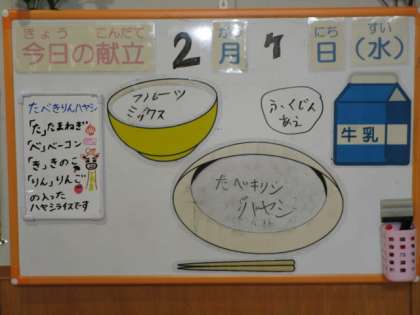 きょう こんだて
今日の献立
2
がつ
月
7
にち
日
すい
(水)
たべきりんハヤシ
「た」たまねぎ
「べ」ベーコン
「き」きのこ
「りん」りんご
の入った
ハヤシライスです
フルーツ
ミックス
ふくじん
あえ
牛乳
たべキリン
ハヤシ